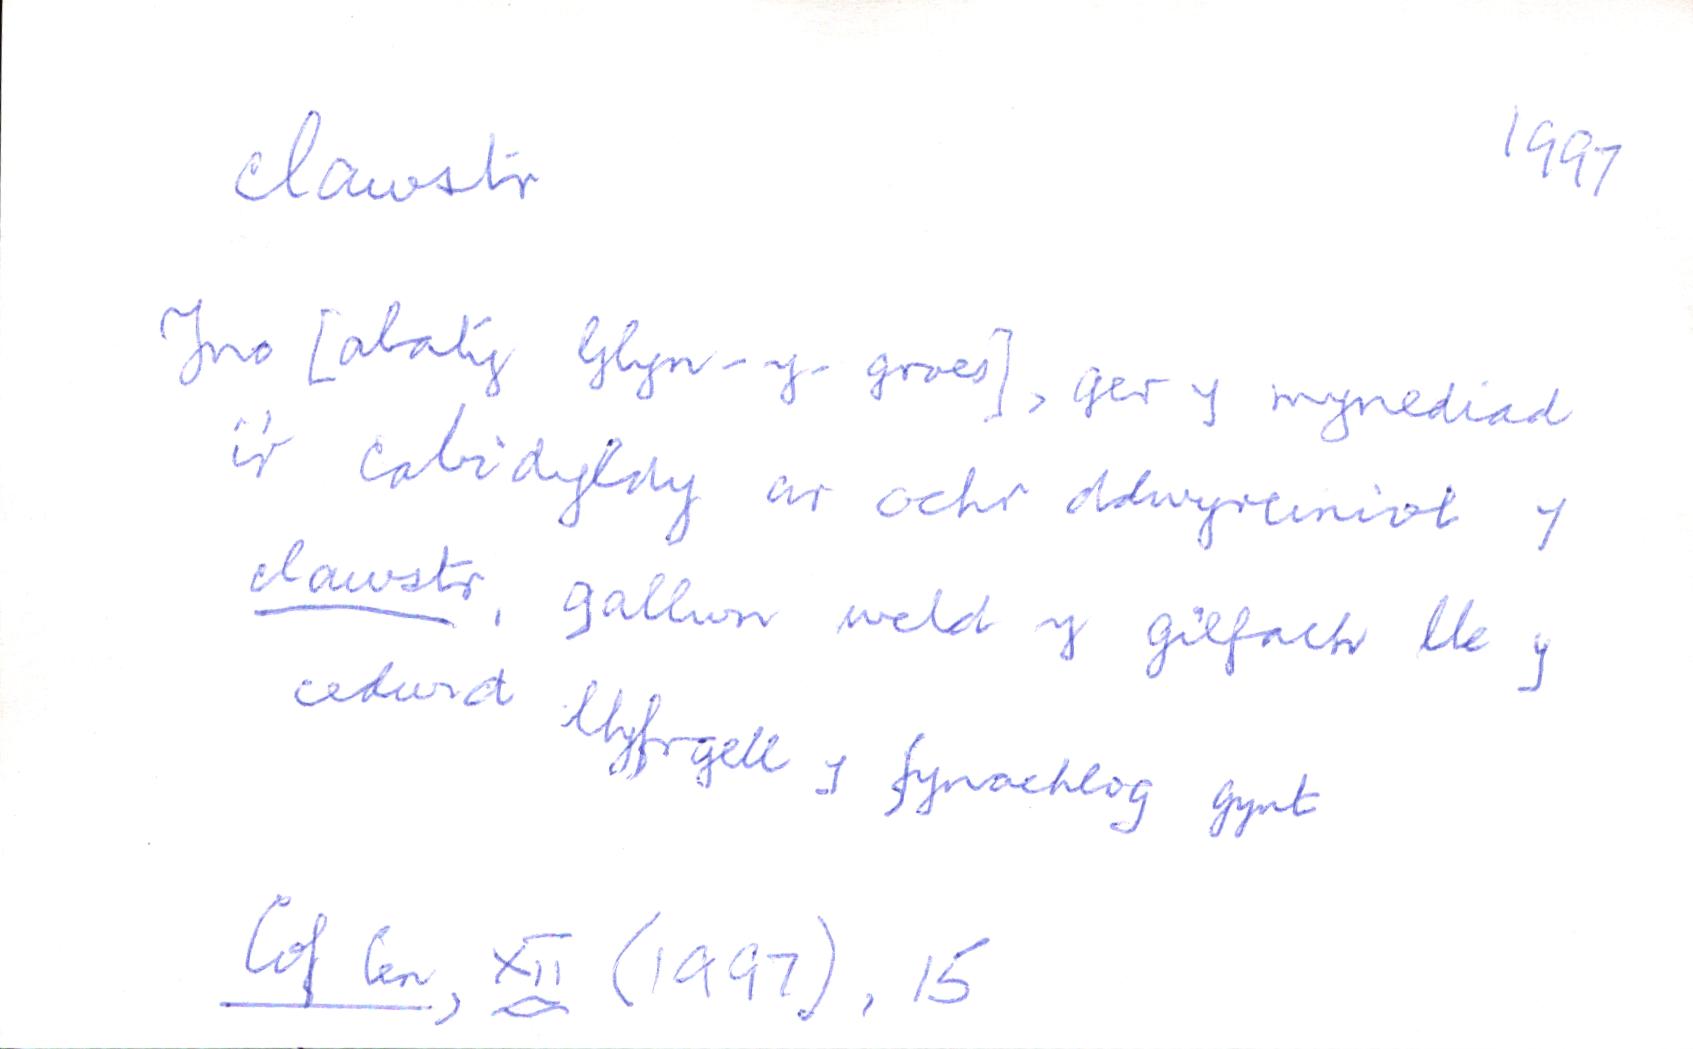 clawstr 1997
Yno [abaty Glyn-y-groes], ger y mynediad
i'r cabidyldy ar ochr ddwyreiniol y
clawstr, gallwn weld y gilfach lle y
cedwid llyfrgell y fynachlog gynt
Cof Cen, XII (1997), 15